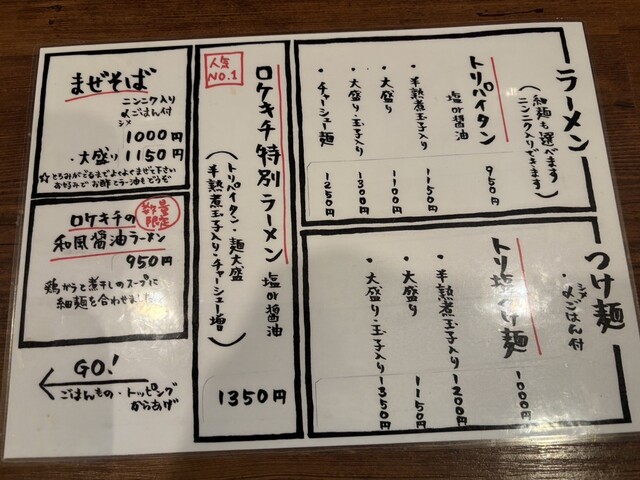 ラーメン
(細麺も選べます
ニンニク入りできます)
トリパイタン
塩or醤油
950円
・半熟煮玉子入り 1150円
・大盛り 1100円
・大盛り・玉子入り 1300円
・チャーシュー麺 1250円
つけ麺
・〆ごはん付
シメ
トリ塩つけ麺
1000円
・半熟煮玉子入り 1200円
・大盛り 1150円
・大盛り・玉子入り 1350円
人気
NO.1
ロケキチ特別ラーメン
塩or醤油
(トリパイタン・麺大盛
半熟煮玉子入り・チャーシュー増)
1350円
まぜそば
ニンニク入り
〆ごはん付
シメ
1000円
・大盛り 1150円
☆とろみがでるまでよくよくまぜて下さい
お好みでお酢とラー油もどうぞ
ロケキチの
数量
限定
和風醤油ラーメン
950円
鶏ガラと煮干しのスープに
細麺を合わせました
GO!
ごはんもの・トッピング
からあげ